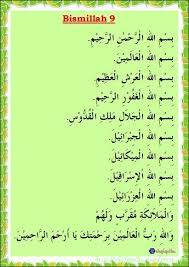 Bismillah 9
بِسْمِ اللهِ الْرَّحْمٰنِ الرَّحِيْمِ.
بِسْمِ اللهِ الْعَالَمِيْنَ.
بِسْمِ اللهِ الْعَرْشِ الْعَظِيْمِ.
بِسْمِ اللهِ الْغَفُوْرِ الرَّحِيْمِ.
بِسْمِ اللهِ الْجَلَالِ مَلِكِ الْقُدُّوْسِ.
بِسْمِ اللهِ الْجِبْرَائِيْلَ.
بِسْمِ اللهِ الْمِيْكَائِيْلَ.
بِسْمِ اللهِ الْإِسْرَافِيْلَ.
بِسْمِ اللهِ الْعِزْرَائِيْلَ.
وَالْمَلَائِكَةِ مُقَرَّبٍ وَلَهُمْ
وَاللهِ رَبُّ الْعَالَمِيْنَ بِرَحْمَتِكَ يَا أَرْحَمَ الرَّاحِمِيْنَ.